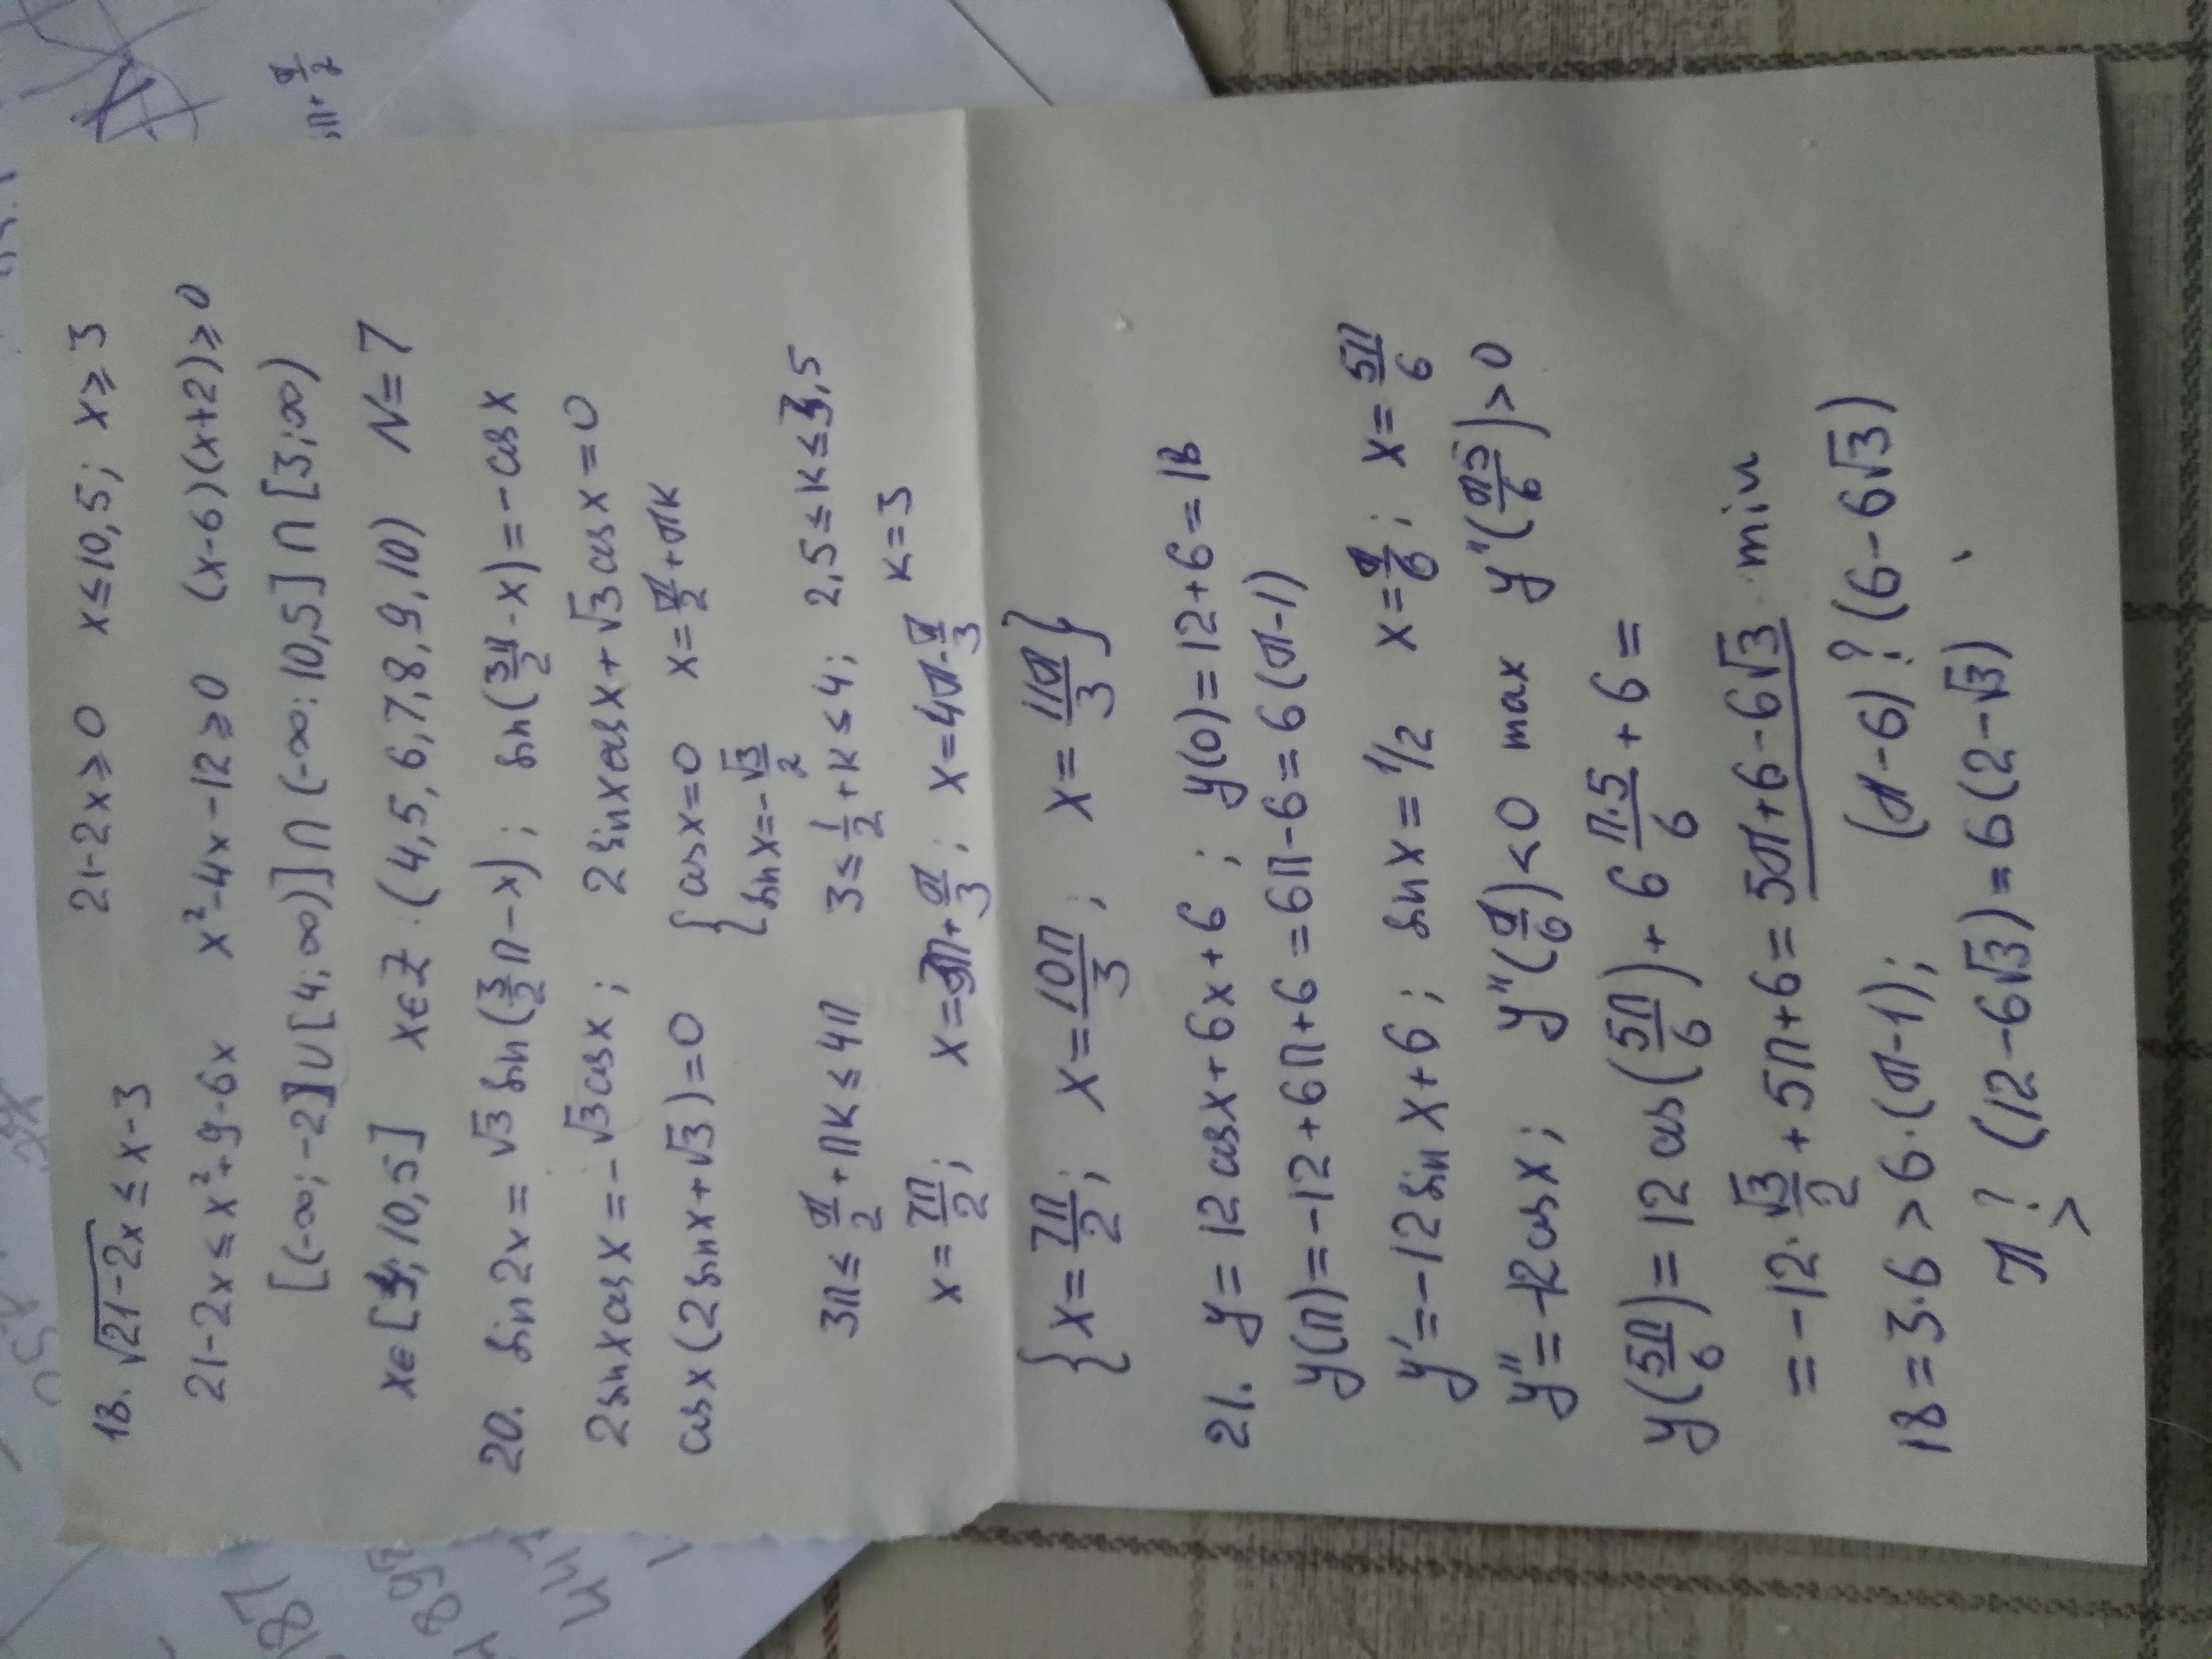 18. √(21-2x) ≤ x-3   21-2x ≥ 0   x ≤ 10,5; x ≥ 3
21-2x ≤ x²+9-6x   x²-4x-12 ≥ 0   (x-6)(x+2) ≥ 0
[(-∞; -2] ∪ [4; ∞)] ∩ (-∞; 10,5] ∩ [3; ∞)
x ∈ [4; 10,5]   x ∈ Z : (4, 5, 6, 7, 8, 9, 10)   N = 7
20. sin 2x = √3 sin(3/2 π - x);   sin(3π/2 - x) = -cos x
2 sin x cos x = -√3 cos x;   2 sin x cos x + √3 cos x = 0
cos x (2 sin x + √3) = 0   { cos x = 0   x = π/2 + πk
sin x = -√3/2
3π ≤ π/2 + πk ≤ 4π   3 ≤ 1/2 + k ≤ 4;   2,5 ≤ k ≤ 3,5
x = 7π/2;   x = 3π + π/3;   x = 4π - π/3   k = 3
{ x = 7π/2;   x = 10π/3;   x = 11π/3 }
21. y = 12 cos x + 6x + 6;   y(0) = 12 + 6 = 18
y(π) = -12 + 6π + 6 = 6π - 6 = 6(π - 1)
y' = -12 sin x + 6;   sin x = 1/2   x = π/6;   x = 5π/6
y'' = -12 cos x;   y''(π/6) < 0 max   y''(π5/6) > 0
y(5π/6) = 12 cos(5π/6) + 6 π·5/6 + 6 =
= -12 · √3/2 + 5π + 6 = 5π + 6 - 6√3 min
18 = 3·6 > 6·(π - 1);   (π - 6) ? (6 - 6√3)
π ? (12 - 6√3) = 6(2 - √3)
>